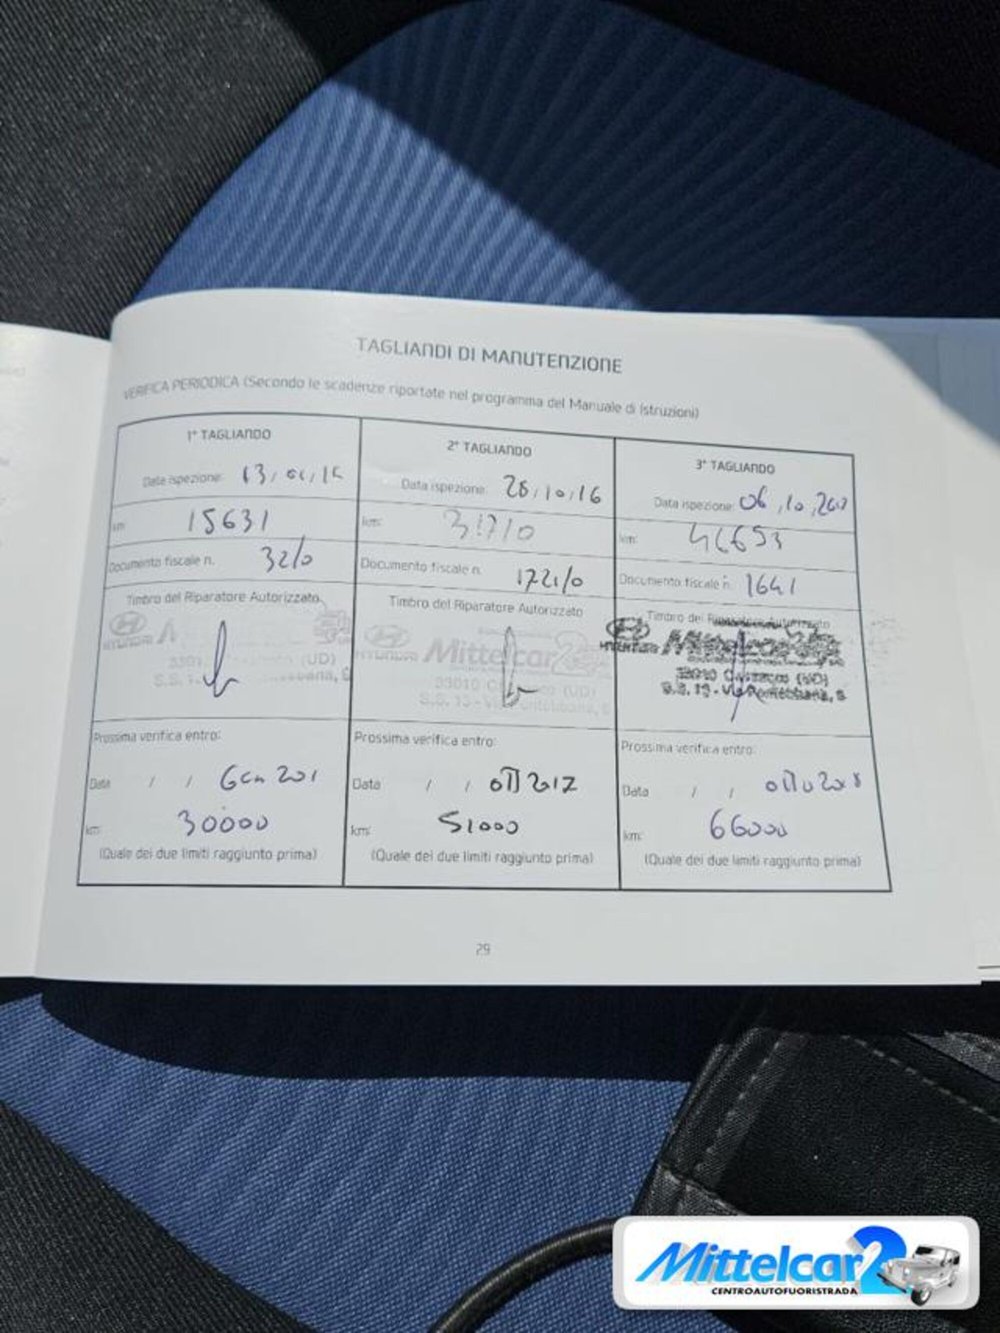 TAGLIANDI DI MANUTENZIONE
VERIFICA PERIODICA (Secondo le scadenze riportate nel programma del Manuale di Istruzioni)
1° TAGLIANDO
Data ispezione:
km: 15631
Documento fiscale n. 32/0
Timbro del Riparatore Autorizzato
HYUNDAI
(UD)
Prossima verifica entro:
Data / /
km: 30000
(Quale dei due limiti raggiunto prima)
2° TAGLIANDO
Data ispezione: 28/10/16
km:
Documento fiscale n. 1721/0
Timbro del Riparatore Autorizzato
HYUNDAI Mittelcar2
33010 (UD)
S.S. 13 - Via Pontebbana,
Prossima verifica entro:
Data / / OTT 2017
km: 51000
(Quale dei due limiti raggiunto prima)
3° TAGLIANDO
Data ispezione: 06,10,2017
km: 46653
Documento fiscale n. 1641
Timbro del Autorizzato
HYUNDAI Mittelcar
33010 (UD)
S.S. 13 - Via Pontebbana,
Prossima verifica entro:
Data / / 2018
km: 66000
(Quale dei due limiti raggiunto prima)
29
Mittelcar2
CENTROAUTOFUORISTRADA